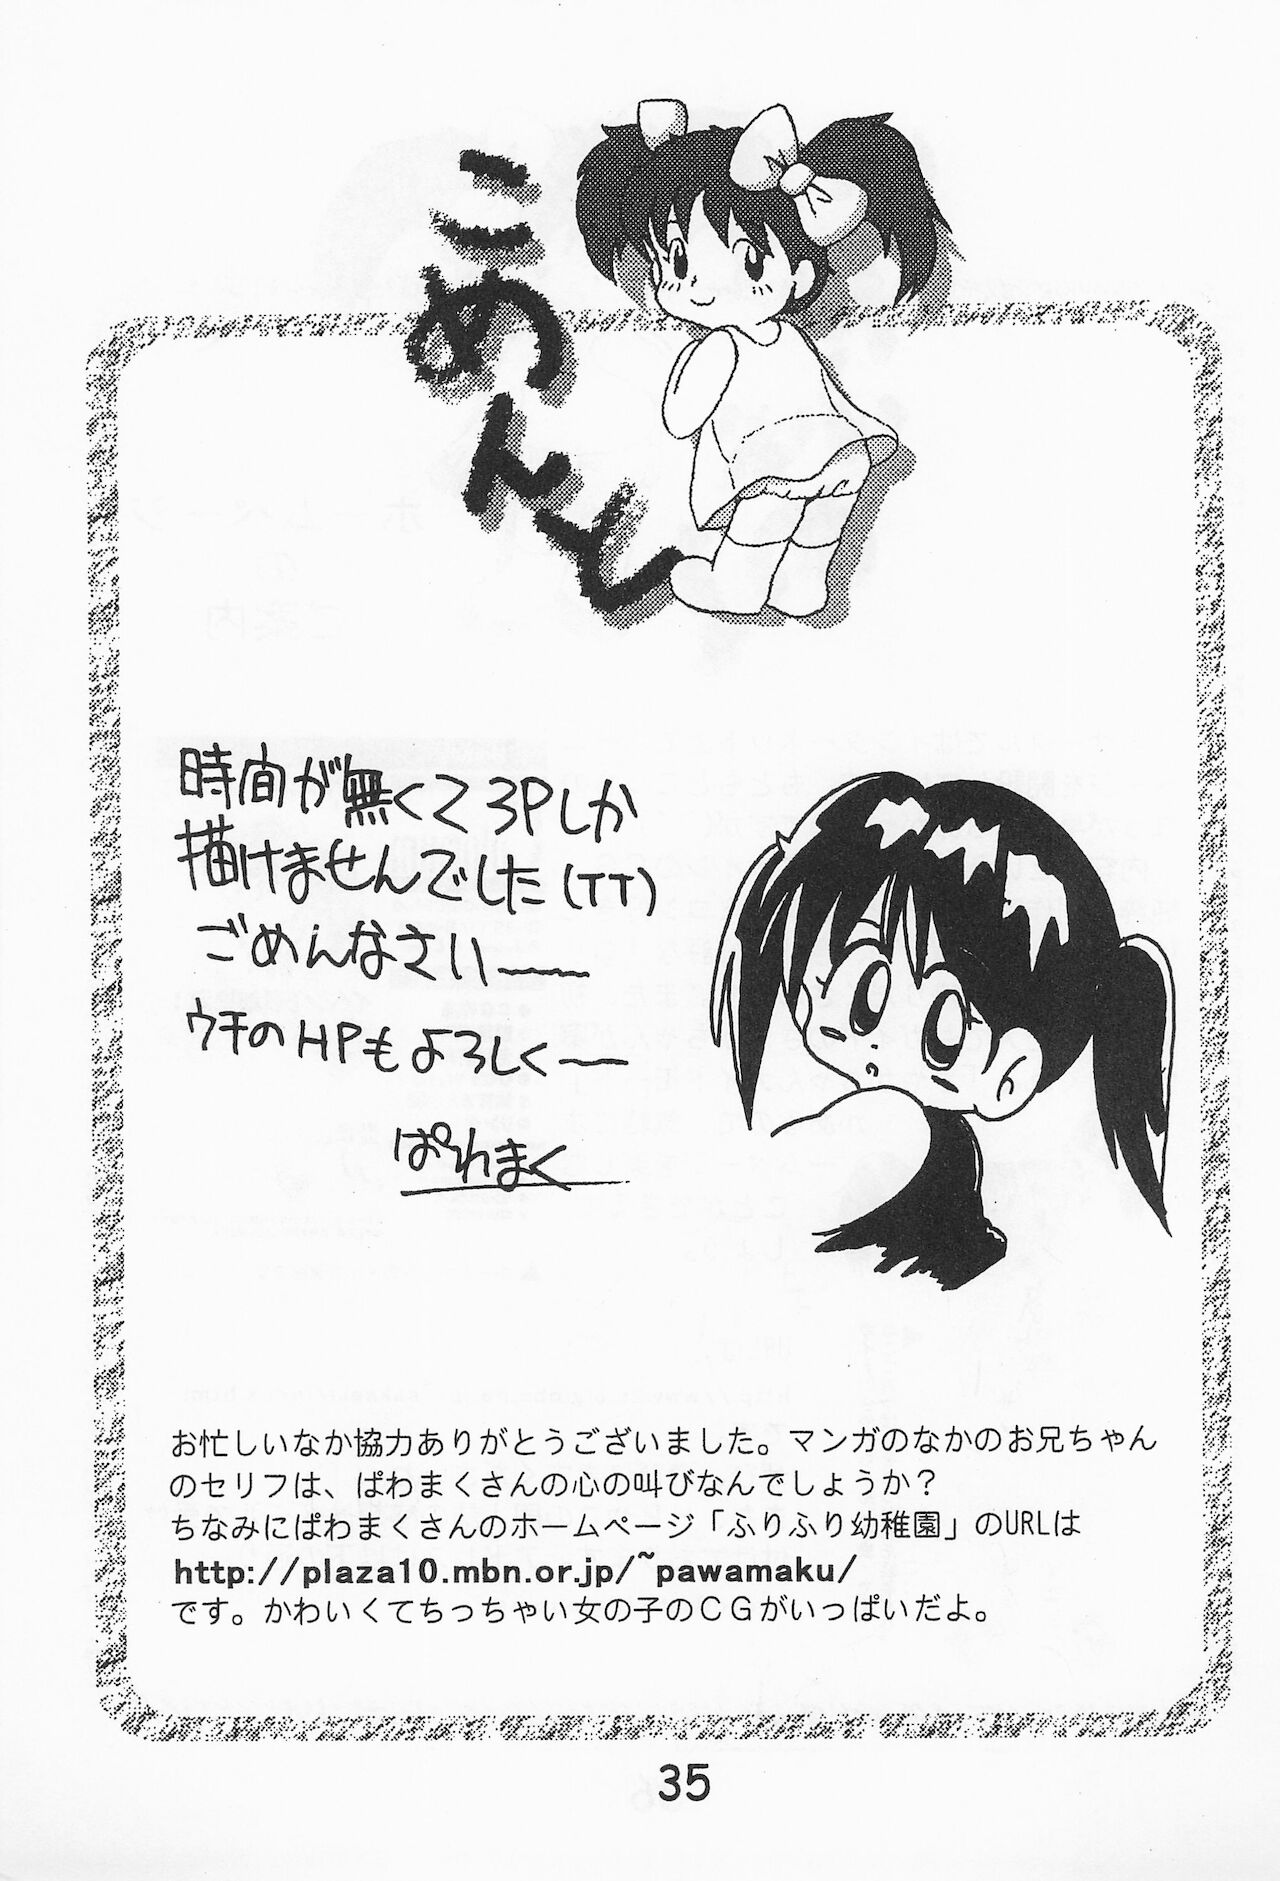 こめんと
時間が無くて3Pしか
描けませんでした(TT)
ごめんなさい〜
ウチのHPもよろしく〜
ぱわまく
お忙しいなか協力ありがとうございました。マンガのなかのお兄ちゃん
のセリフは、ぱわまくさんの心の叫びなんでしょうか？
ちなみにぱわまくさんのホームページ「ふりふり幼稚園」のURLは
http://plaza10.mbn.or.jp/~pawamaku/
です。かわいくてちっちゃい女の子のＣＧがいっぱいだよ。
35